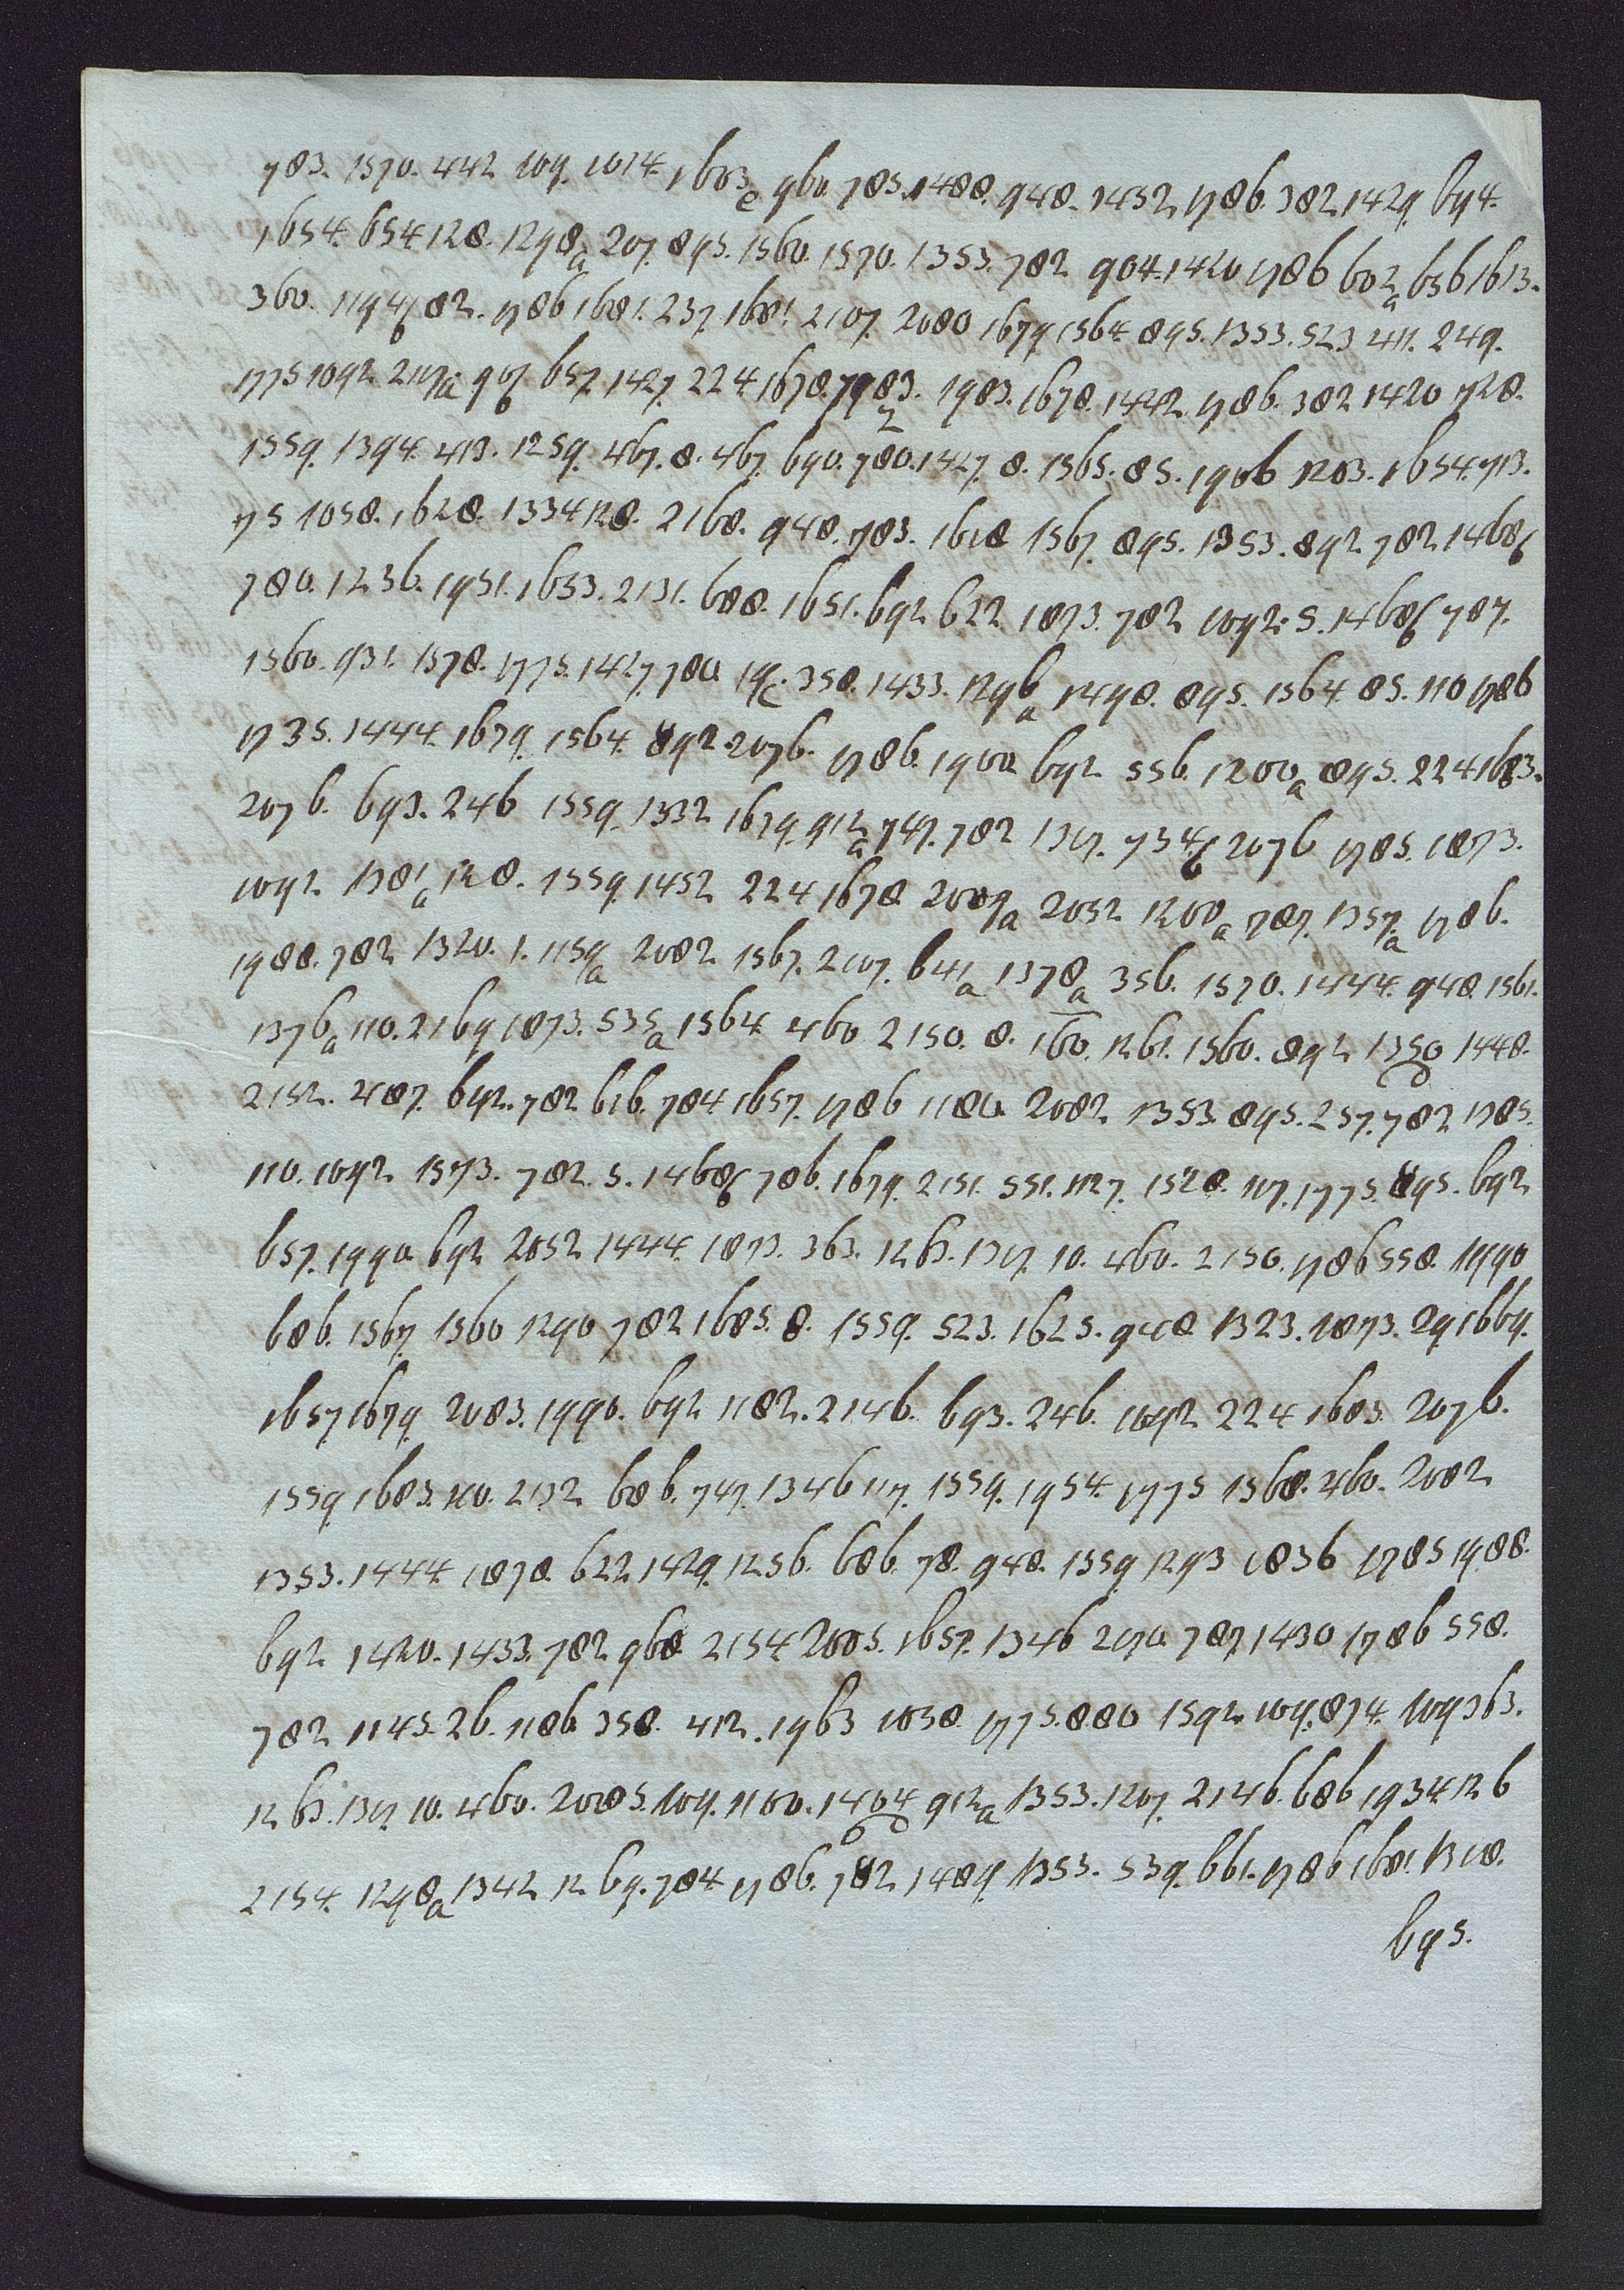 783. 1570. 442 109. 1014. 1603e 960. 785. 1488. 948. 1452 1786. 382 1429. 694.
1654. 654 128. 1298a 207. 895. 1560. 1570. 1353. 782 904. 1420 1786 602a 656 1613.
360. 1194b 82. 1786 1681. 237 1681. 2107. 2080 1679 1564. 895. 1353. 523 411. 249.
1775 1092 2117a 96b 657. 1427. 224. 1678. 1983. 1678. 1442. 1786. 382 1420 728.
1559. 1394. 413. 1259. 467. 8. 467. 690. 780. 1427. 8. 1565. 85. 1966 1203. 1654. 713.
75 1058. 1628. 1334 128. 2168. 948. 783. 1618 1567. 895. 1353. 892 782 1468b
780. 1236. 1951. 1653. 2131. 688. 1651. 692 622 1873. 782 1092. 5. 1468b 787.
1560. 931. 1578. 1775. 1427. 780. 19c. 358. 1433. 1296a 1498. 895. 1564. 85. 110 1786
1735. 1444. 1679. 1564. 892 2076. 1786. 1900 692 556. 1200a 895. 224 1683.
2076. 693. 246 1559. 1332 1679. 912a 747. 782 1317. 734b 2076 1785. 1873.
1092 1381a 128. 1559. 1452 224 1678 2009a 2052 1200a 787. 1357a 1786.
1988. 782 1320. 1. 1159a 2082 1567. 2107. 641a 1378a 356. 1570. 1444. 948. 1561.
1376a 110. 2169 1873. 535a 1564 460 2150. 8. 160. 1261. 1560. 892 1350d 1448.
2152. 287. 692. 782 616. 784 1657. 1786 1180 2082 1353. 895. 257. 782 1785.
110. 1092 1573. 782. 5. 1468b 786. 1679. 2151. 551. 1127. 1528. 117. 1775. 895. 692
657. 1990 692 2052 1444. 1873. 363. 1263. 1317. 10. 460. 2150. 1786 558. 1990
686. 1567 1560 1290 782 1685. 8. 1559. 523. 1625. 948 1323. 1873. 29. 1669.
1657. 1679. 2083. 1990. 692 1182. 2146. 693. 246. 1092 224 1683. 2076.
1559. 1683. 110. 2132 686. 747. 1346 117. 1559. 1954. 1775 1568. 460. 2082
1353. 1444. 1878. 622 1429. 1256. 686. 78. 948. 1559 1293 1836 1785 1988.
692 1420. 1433. 782 968 2154 2005. 1657. 1346 2070 787. 1430 1786 558.
782 1145. 26. 1186 358. 412. 1963 1058. 1775. 880 1592 109. 874. 109 363.
1263. 1317. 10. 460. 2085. 109. 1100. 1404 912a 1353. 1207. 2146. 686 1934. 126
2154. 1298a 1342 1269. 784 1786. 782 1489. 1353. 539. 661. 1786 1681. 1318.
695.